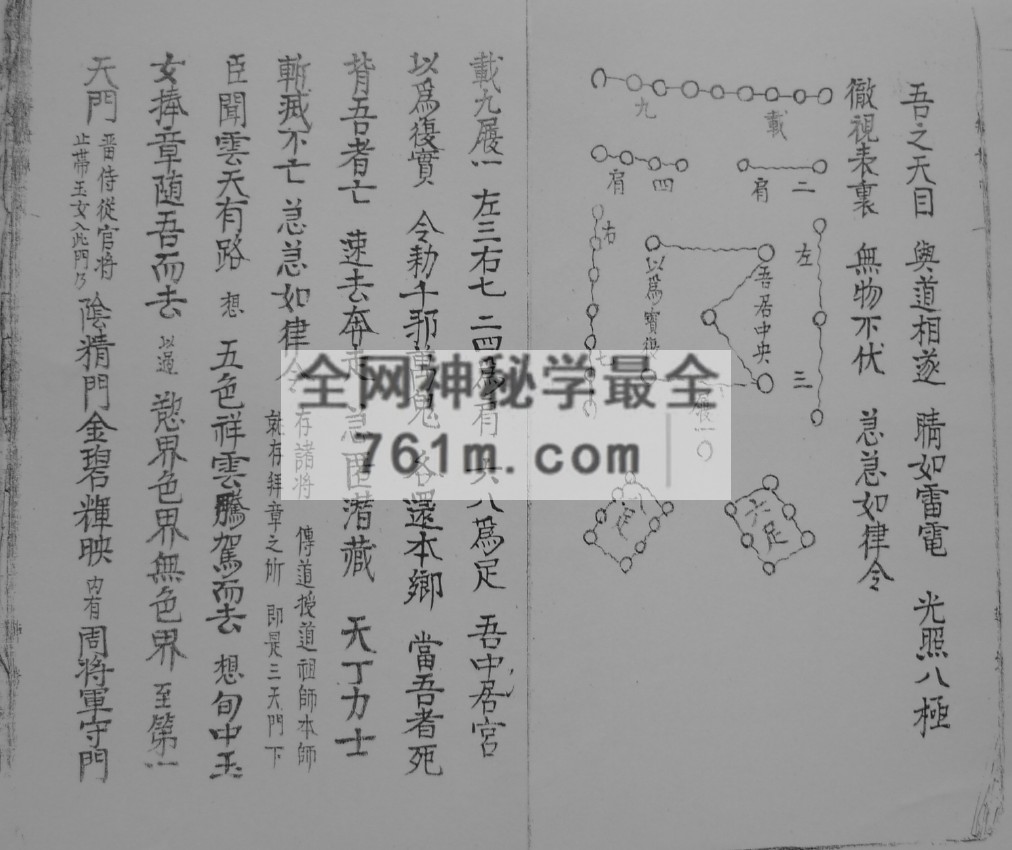 吾之天目 與道相遂 睛如雷電 光照八極
徹視表裏 無物不伏 急急如律令
載 九
二 肩
四 肩
左 三
右 七
吾居中央
以為實
履一
六足
足
載九履一 左三右七 二四為肩 六八為足 吾中居宮
以為復實 令勅千邪萬鬼 各還本鄉 當吾者死
背吾者亡 速去奔走 急匿潜藏 天丁力士
斬滅不亡 急急如律令 存諸將 傳道授道祖師本師
就存拜章之所 即是三天門下
臣聞雲天有路 想 五色祥雲騰駕而去 想旬中玉
女捧章随吾而去 以過 慾界色界無色界 至第一
天門 畨侍從官將
止帶玉女入此門乃 陰精門金碧輝映 内有周將軍守門
全网神秘学最全
761m.com